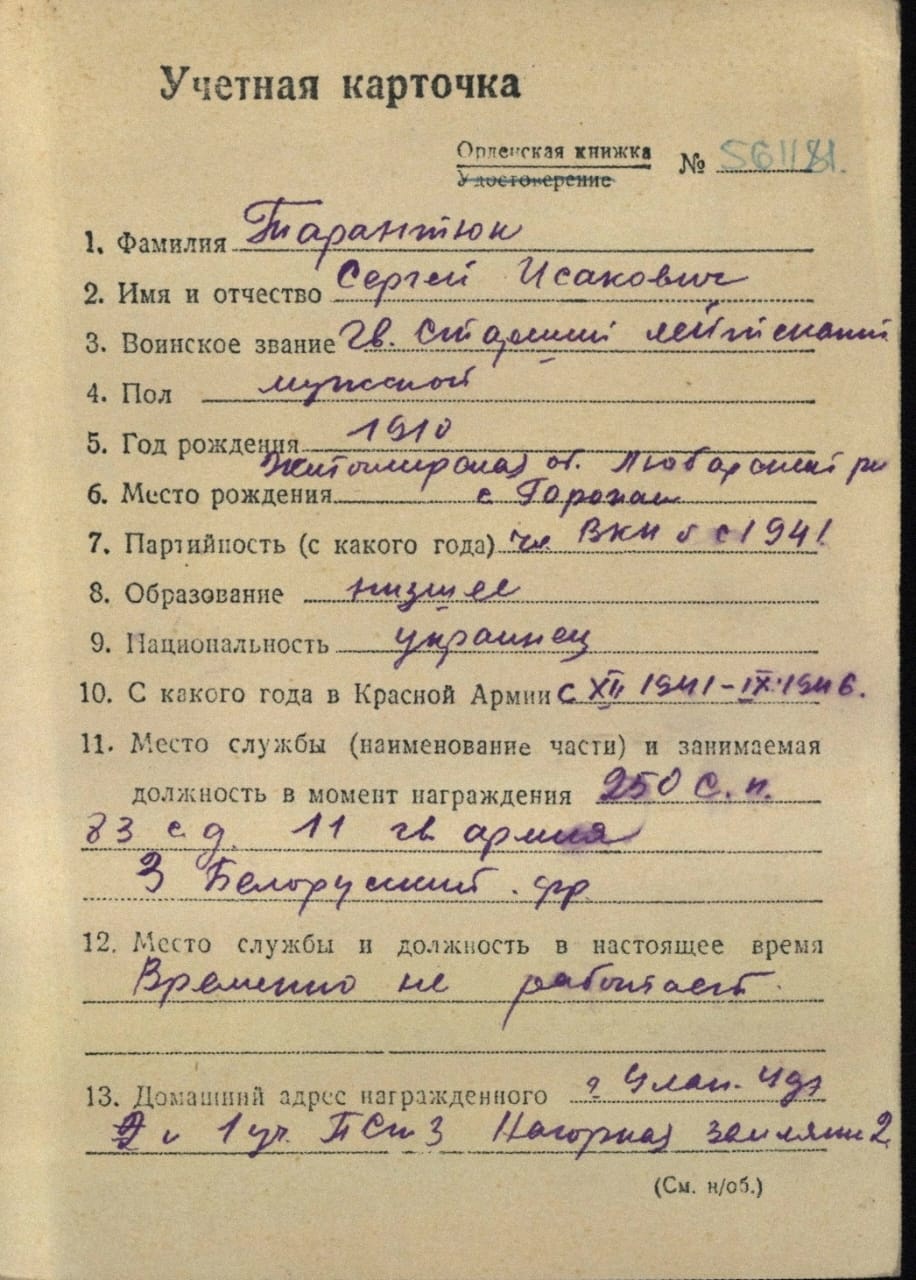 Учетная карточка
Орденская книжка
Удостоверение
№ 561181.
1. Фамилия Тарантюк
2. Имя и отчество Сергей Исакович
3. Воинское звание Гв. Старший лейтенант
4. Пол мужской
5. Год рождения 1910
Житомирская об. Любарский
6. Место рождения с
7. Партийность (с какого года) чл ВКП б с 1941
8. Образование низшее
9. Национальность украинец
10. С какого года в Красной Армии с XII 1941-IX.1946.
11. Место службы (наименование части) и занимаемая
должность в момент награждения 250 с. п.
83 с д. 11 гв армия
3 Белоруский. фр
12. Место службы и должность в настоящее время
Временно не работает.
13. Домашний адрес награжденного г Улан-Удэ
1 уч. Нагорная 2
(См. н/об.)